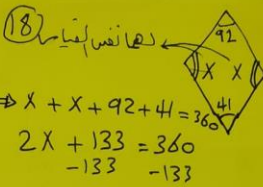 18 لهما نفس القياس
92
X X
41
⇒ X + X + 92 + 41 = 360
2X + 133 = 360
-133 -133